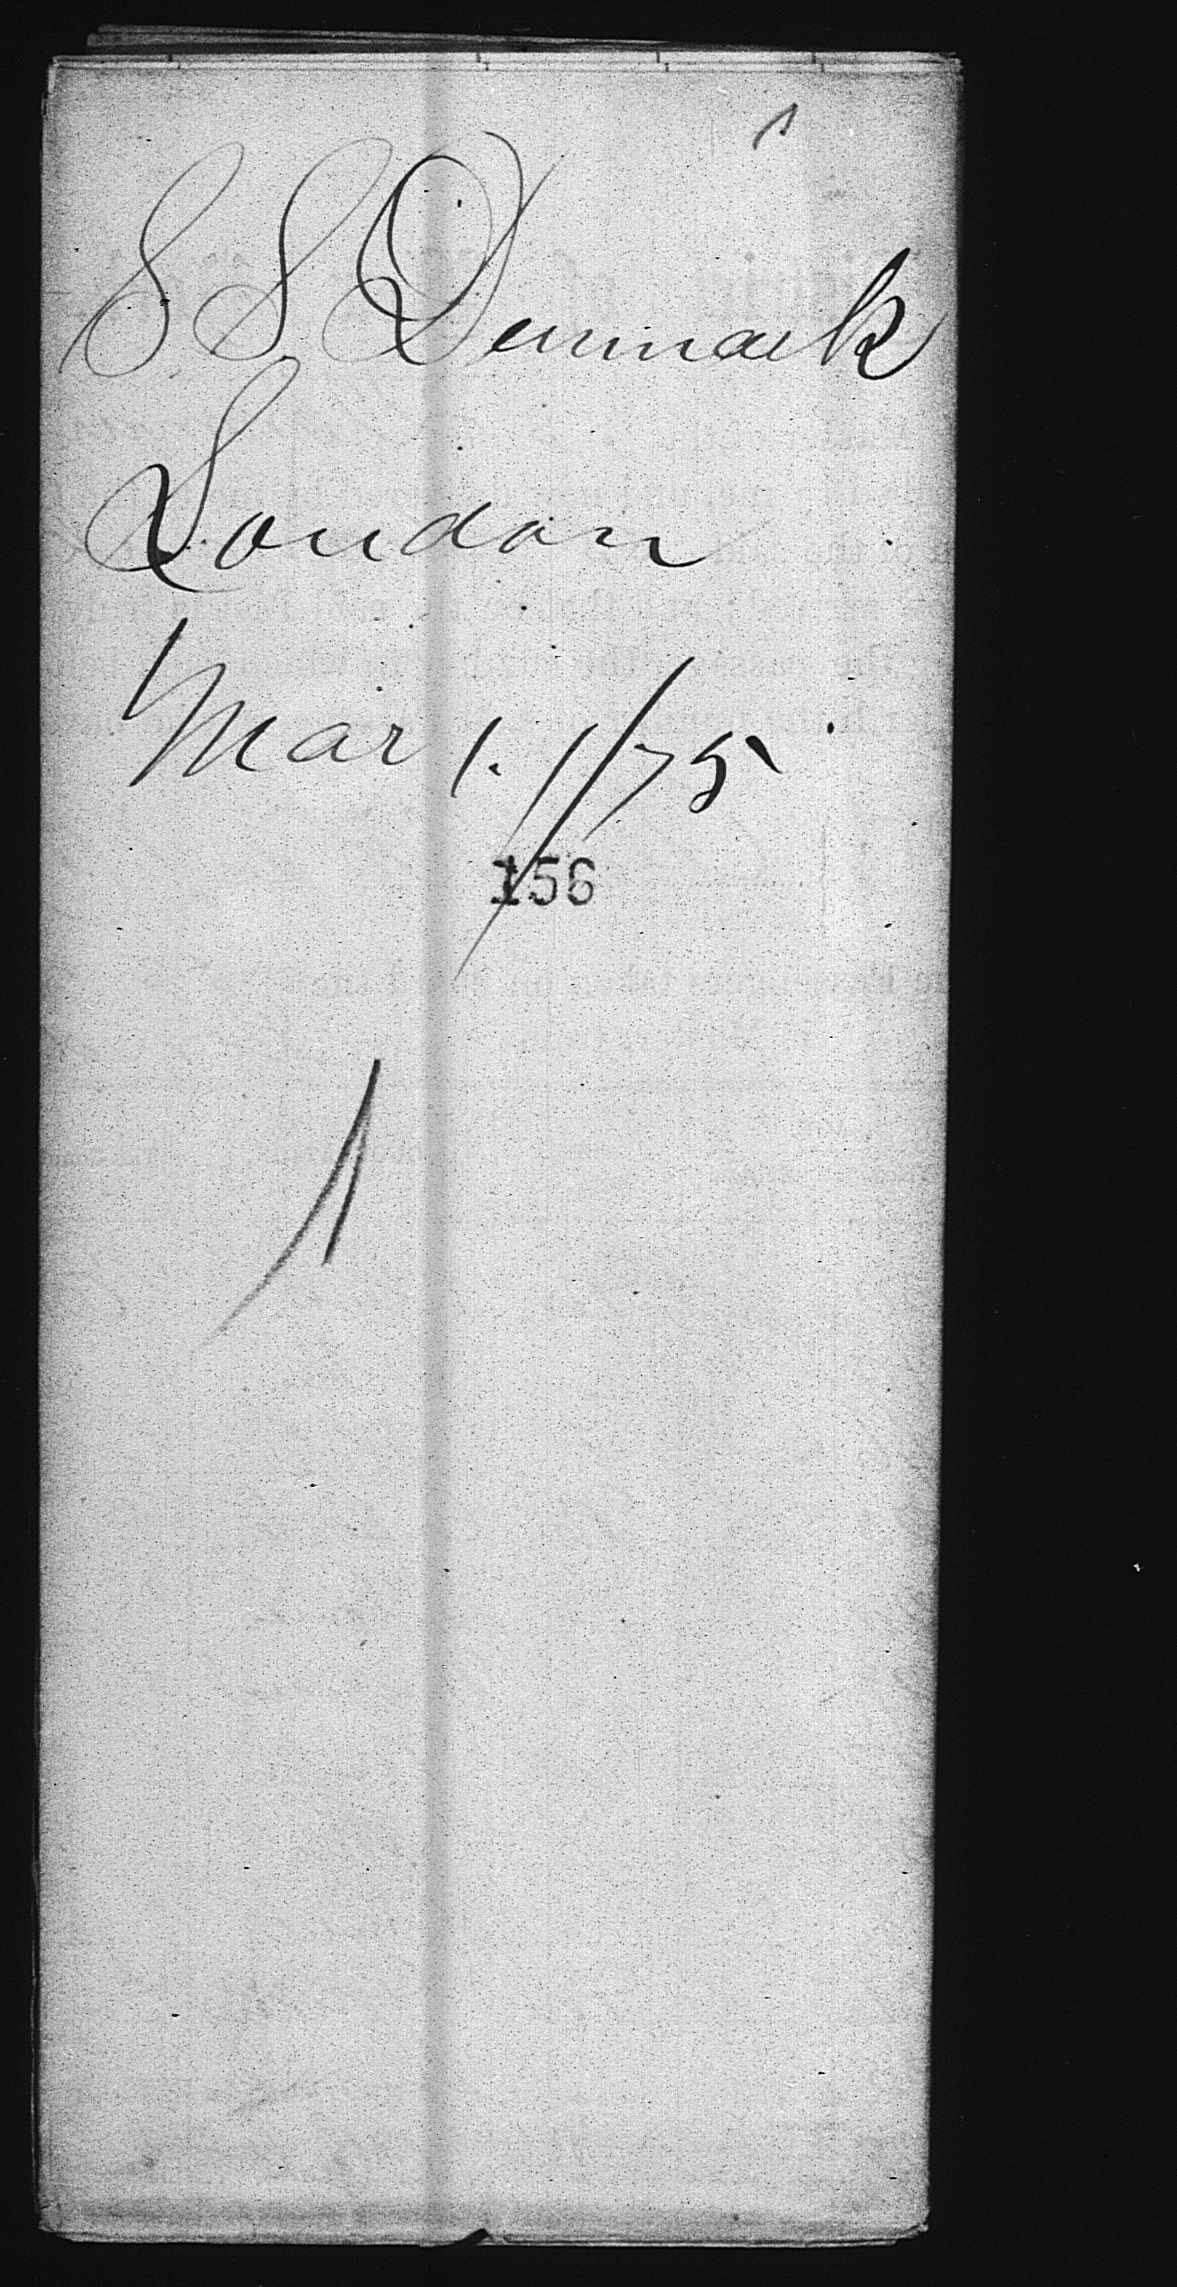 S S Denmark
London
Mar 1. 1/75
156